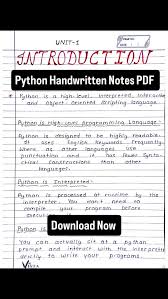 UNIT-1
INTRODUCTION
Python Handwritten Notes PDF
Python is a high-level, interpreted, interactive
and object-oriented scripting language.
Python is High-level Programming Language:
Python is designed to be highly readable.
It uses English keywords frequently
where as other languages use
punctuation and it has fewer syntac-
tical constructions than other
languages.
Python is Interpreted:
Python is processed at runtime by the
interpreter. You do not need to
compile your program before
Download Now
You can actually sit at a python
prompt and interact with the interpreter
directly to write your programs.